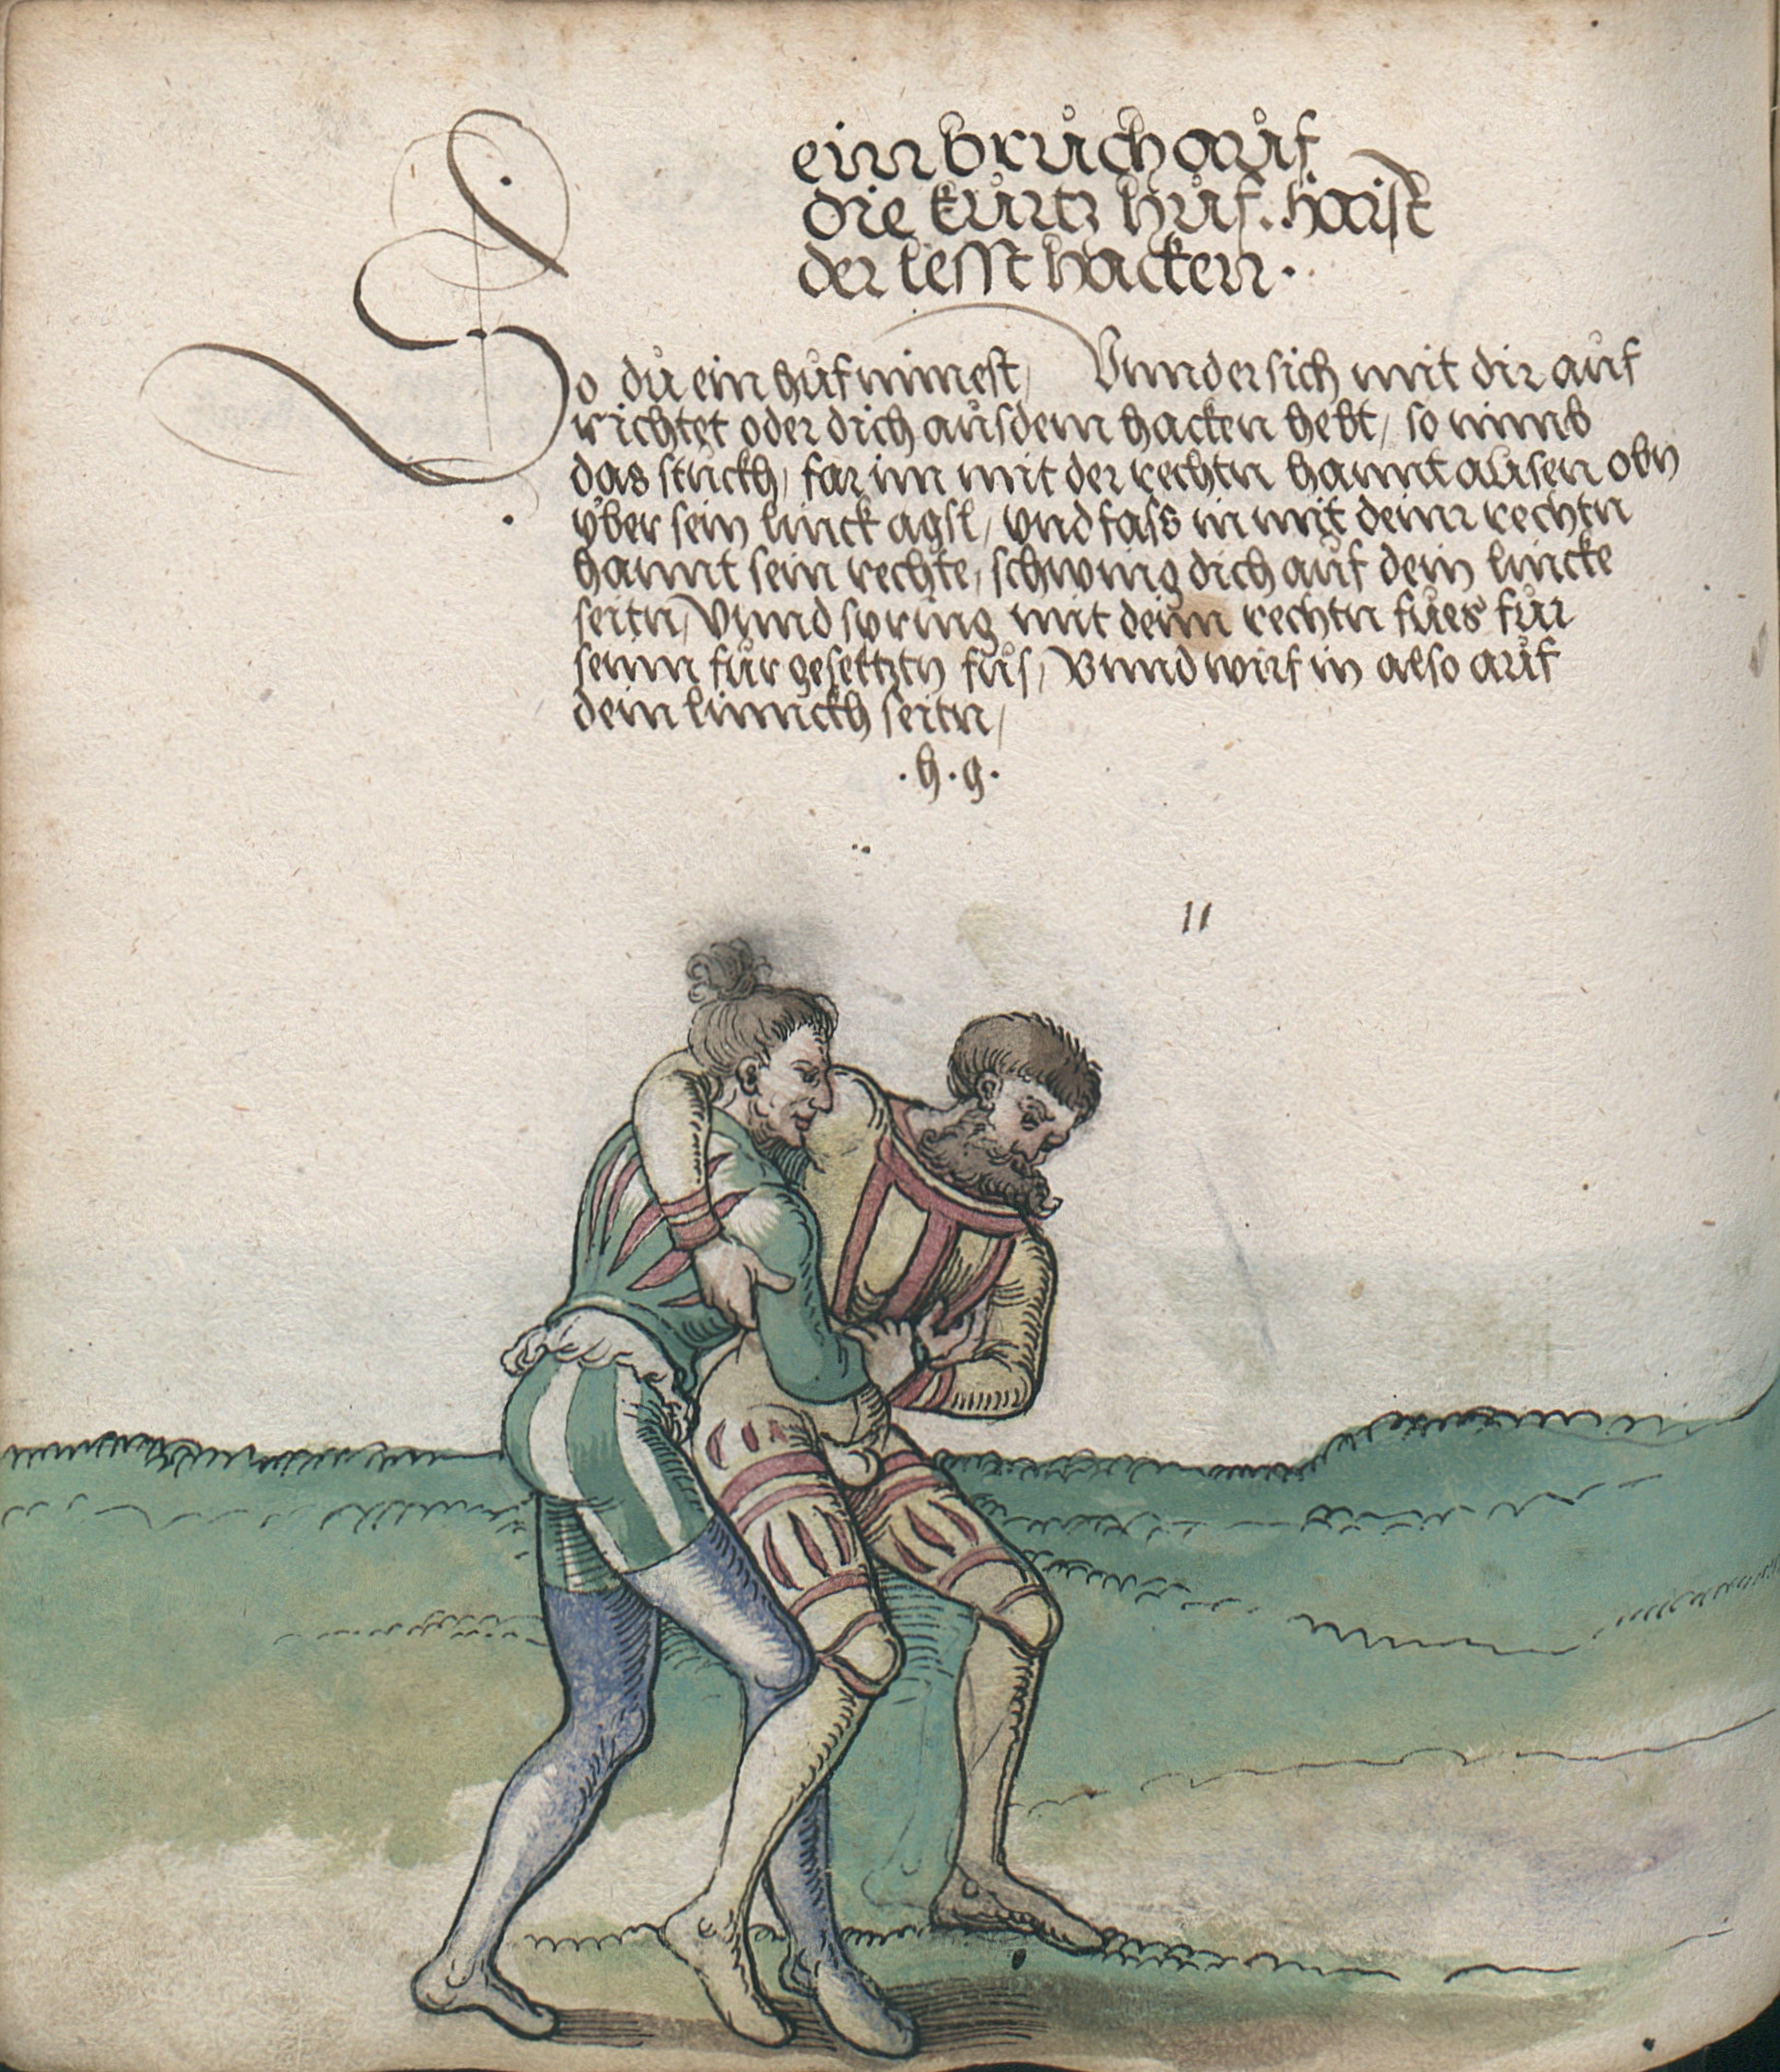 ein brůch aůf
die kůrtz hůf. haist
der lesst hacken.
So dů ein hůf nimest, Vnnd er sich mit dir aůf
richtet oder dich aůs dem hacken hebt, so nimb
das stůckh, far im mit der rechtn hannt ausen obn
vber sein linck agsl, vnd fass in mit deinr rechtn
hannt sein rechte, schwing dich aůf dein lincke
seitn, Vnnd spring mit deim rechtn fůes fůr
seinn fůr gesetztn fůs, Vnnd wirf in also aůf
dein linnckh seitn,
.h.g.
11